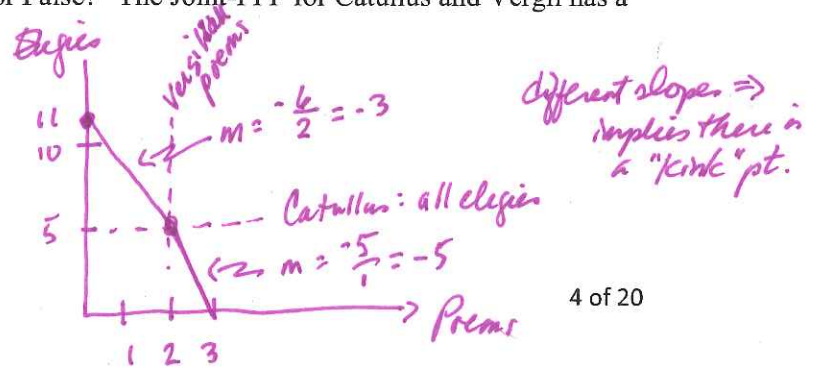 or False? The Joint-PPF for Catullus and Vergil has a
Elegies
Vergil all poems
11
10
5
m = -6/2 = -3
Catullus: all elegies
m = -5/1 = -5
1 2 3
Poems
different slopes ⇒
implies there is
a "kink" pt.
4 of 20